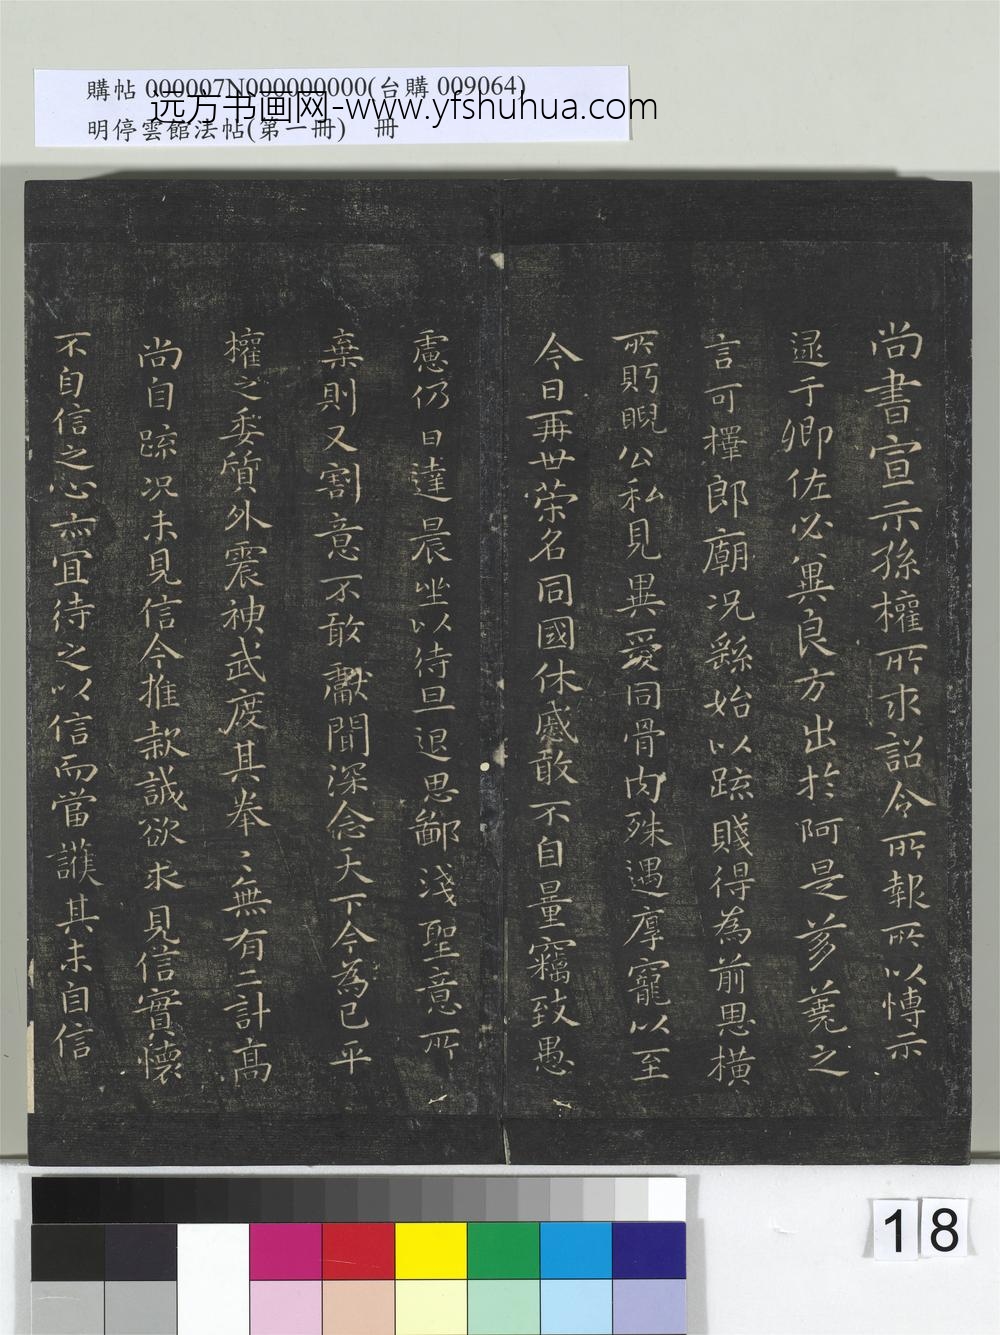 購帖 000007N000000000(台購 009064)
远方书画网-www.yfshuhua.com
明停雲館法帖(第一冊) 冊
尚書宣示孫權所求詔令所報所以博示
逯于卿佐必冀良方出於阿是芻蕘之
言可擇郎廟況繇始以疏賤得為前恩橫
所眄睨公私見異愛同骨肉殊遇厚寵以至
今日再世荣名同國休慼敢不自量竊致愚
慮仍日達晨坐以待旦退思鄙淺聖意所
棄則又割意不敢獻聞深念天下今為已平
權之委質外震神武度其拳〻無有二計高
尚自疏況未見信今推款誠欲求見信實懷
不自信之心亦宜待之以信而當護其未自信
18